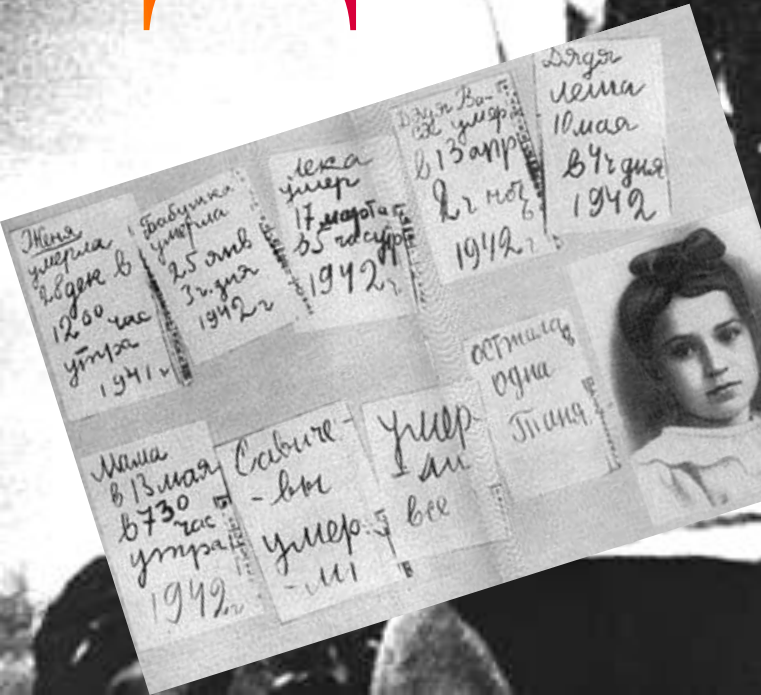 Женя
умерла
28 дек в
12 00 час
утра
1941 г
Бабушка
умерла
25 янв
3 ч. дня
1942 г
Лека
умер
17 марта
в 5 час утр
1942 г
Дядя Ва-
ся умер
в 13 апр
2 ч ночь
1942 г
Дядя
Леша
10 мая
в 4 ч дня
1942
Мама
в 13 мая
в 7 30
час
утра
1942 г
Савиче-
-вы
умер
-ли
умер
-ли
все
осталась
одна
Таня